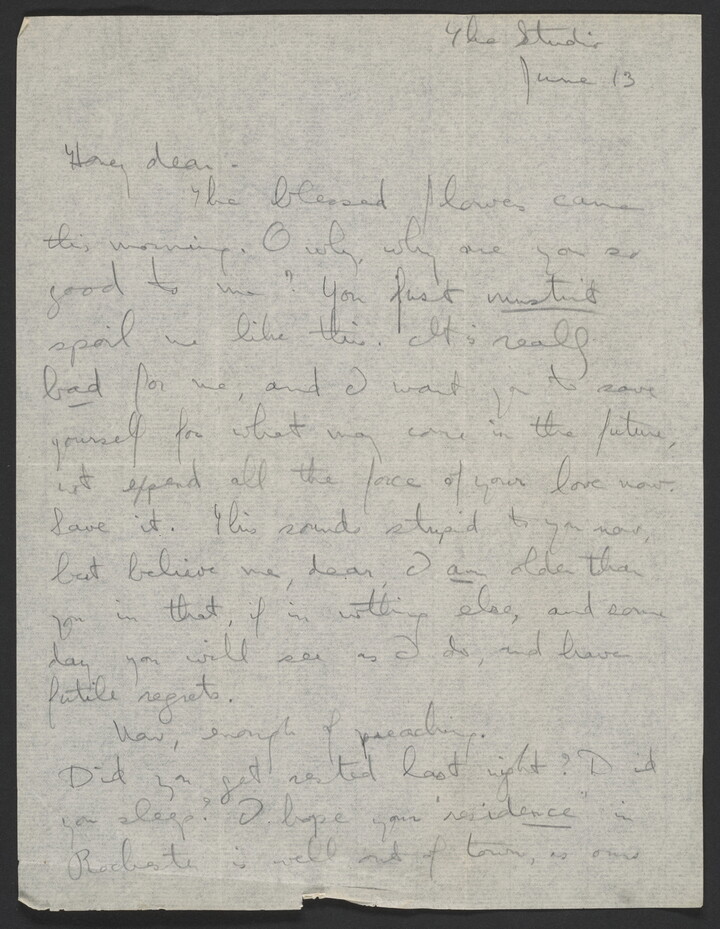 The Studio
June 13
Honey dear -
The blessed flowers came
this morning. O why, why are you so
good to me? You just mustn't
spoil me like this. It's really
bad for me, and I want you to save
yourself for what may come in the future,
not expend all the force of your love now.
Save it. This sounds stupid to you now,
but believe me, dear, I am older than
you in that, if in nothing else, and some
day you will see as I do, and have
futile regrets.
Now, enough of preaching.
Did you get rested last night? Did
you sleep? I hope your "residence" in
Rochester is well out of town, as ours